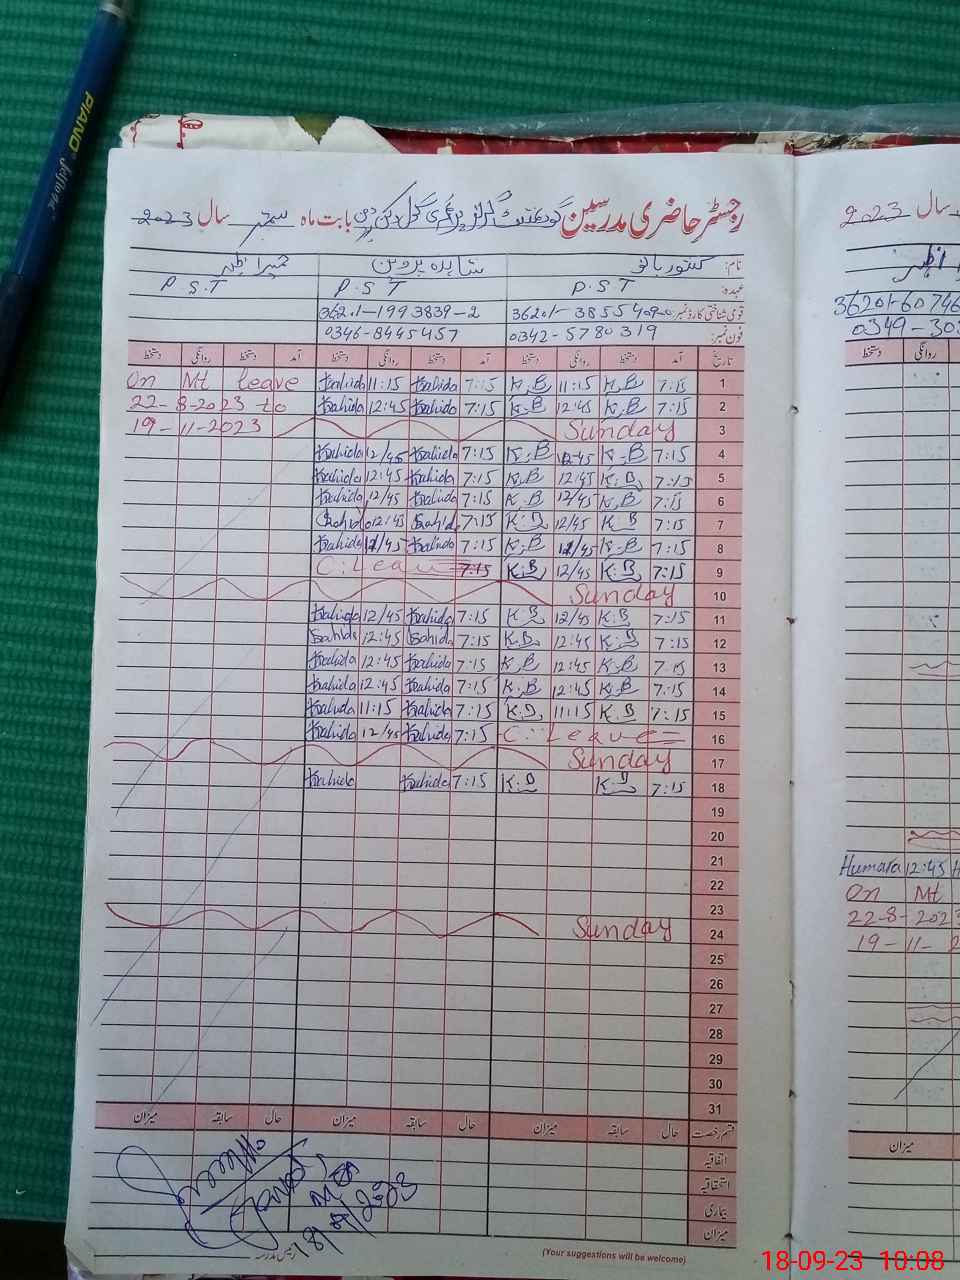 PIANO
رجسٹر حاضری مدرسین گورنمنٹ گرلز پرائمری سکول بابت ماہ ستمبر سال 2023
نام: کشور بانو شاہدہ پروین حمیرا
عہدہ: P.S.T P.S.T P.S.T
قومی شناختی کارڈ نمبر: 36201-3855409-0 36201-1993839-2
فون نمبر: 0342-5780319 0346-8445457
تاریخ آمد دستخط روانگی دستخط آمد دستخط روانگی دستخط آمد دستخط روانگی دستخط
1 7:15 K.B 11:15 K.B 7:15 Sahida 11:15 Sahida On Mt leave
2 7:15 K.B 12:45 K.B 7:15 Sahida 12:45 Sahida 22-8-2023 to
3 Sunday 19-11-2023
4 7:15 K.B 12:45 K.B 7:15 Sahida 12/45 Sahida
5 7:15 K.B 12:45 K.B 7:15 Sahida 12:45 Sahida
6 7:15 K.B 12/45 K.B 7:15 Sahida 12/45 Sahida
7 7:15 K.B 12/45 K.B 7:15 Sahida 12:45 Sahida
8 7:15 K.B 12/45 K.B 7:15 Sahida 12/45 Sahida
9 7:15 K.B 12/45 K.B 7:15 C.Leave
10 Sunday
11 7:15 K.B 12/45 K.B 7:15 Sahida 12/45 Sahida
12 7:15 K.B 12:45 K.B 7:15 Sahida 12:45 Sahida
13 7:15 K.B 12:45 K.B 7:15 Sahida 12:45 Sahida
14 7:15 K.B 12:45 K.B 7:15 Sahida 12:45 Sahida
15 7:15 K.B 11:15 K.B 7:15 Sahida 11:15 Sahida
16 C.Leave 7:15 Sahida 12/45 Sahida
17 Sunday
18 7:15 K.B K.B 7:15 Sahida Sahida
19
20
21
22
23
24 Sunday
25
26
27
28
29
30
31
قسم رخصت حال سابقہ میزان حال سابقہ میزان حال سابقہ میزان
اتفاقیہ
استحقاقیہ
بیماری
میزان
18/9/2023
رئیس مدرسہ
(Your suggestions will be welcome)
سال 2023
36201-60746
0349-30
روانگی دستخط
Humara 12:45
On Mt
22-8-202
19-11-2
میزان
18-09-23 10:08